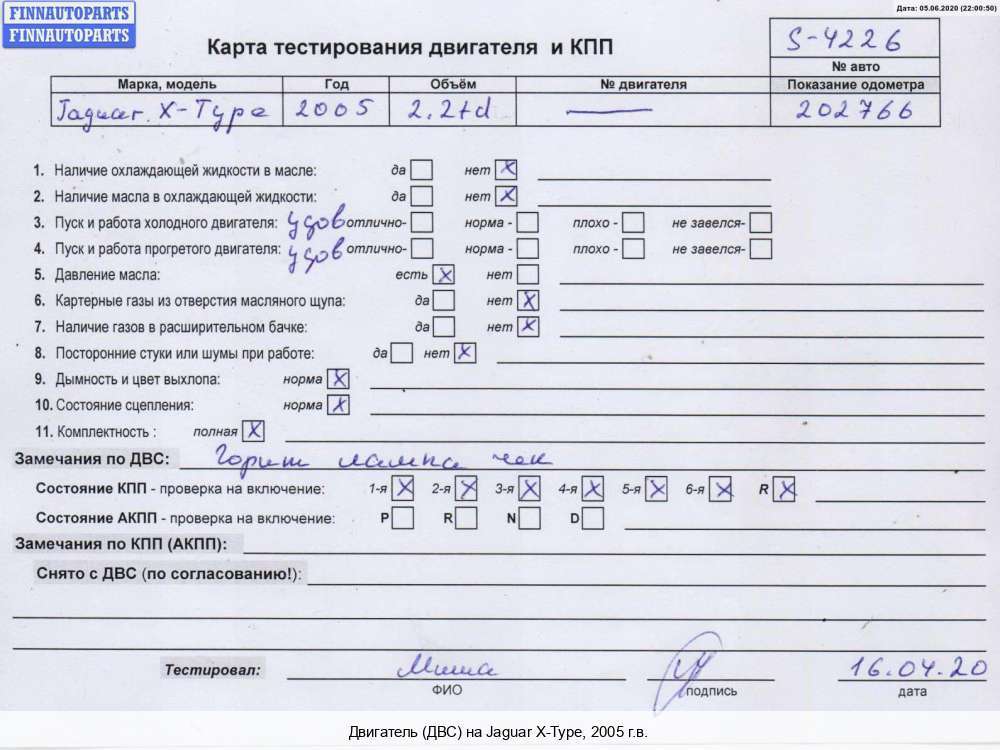 FINNAUTOPARTS
FINNAUTOPARTS
Дата: 05.06.2020 (22:00:50)
Карта тестирования двигателя и КПП
S-4226
№ авто
Марка, модель Год Объём № двигателя Показание одометра
Jaguar. X-Type 2005 2.2td — 202766
1. Наличие охлаждающей жидкости в масле: да нет X
2. Наличие масла в охлаждающей жидкости: да нет X
3. Пуск и работа холодного двигателя: удов отлично- норма - плохо - не завелся-
4. Пуск и работа прогретого двигателя: удов отлично- норма - плохо - не завелся-
5. Давление масла: есть X нет
6. Картерные газы из отверстия масляного щупа: да нет X
7. Наличие газов в расширительном бачке: да нет X
8. Посторонние стуки или шумы при работе: да нет X
9. Дымность и цвет выхлопа: норма X
10. Состояние сцепления: норма X
11. Комплектность : полная X
Замечания по ДВС: Горит лампа чек
Состояние КПП - проверка на включение: 1-я X 2-я X 3-я X 4-я X 5-я X 6-я X R X
Состояние АКПП - проверка на включение: P R N D
Замечания по КПП (АКПП):
Снято с ДВС (по согласованию!):
Тестировал: Миша 16.04.20
ФИО подпись дата
Двигатель (ДВС) на Jaguar X-Type, 2005 г.в.